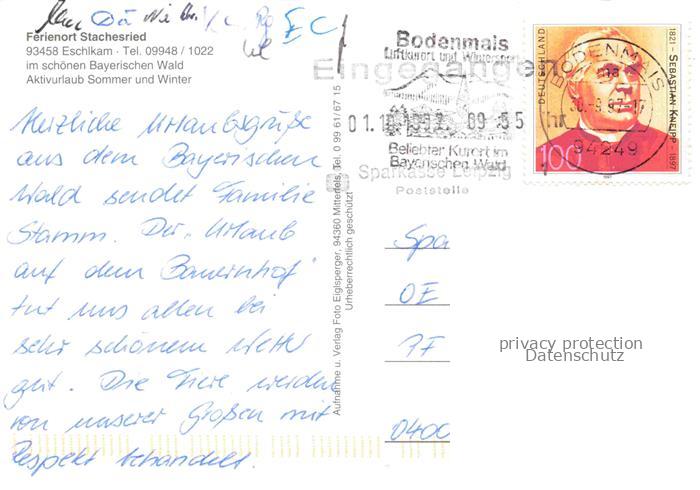 EC
Ferienort Stachesried
93458 Eschlkam · Tel. 09948 / 1022
im schönen Bayerischen Wald
Aktivurlaub Sommer und Winter
Herzliche Urlaubsgrüße
aus dem Bayerischen
Wald sendet Familie
Stamm. Der „Urlaub
auf dem Bauernhof"
tut uns allen bei
sehr schönem Wetter
gut. Die Tiere werden
von unserer Großen mit
Respekt behandelt.
Aufnahme u. Verlag Foto Eiglsperger, 94360 Mitterfels, Tel. 0 99 61/67 15
Urheberrechtlich geschützt
Bodenmais
Luftkurort und Wintersport
Eingegangen
01.10.1997 09 55
Beliebter Kurort im
Bayerischen Wald
Sparkasse Leipzig
Poststelle
DEUTSCHLAND
100
1821 - SEBASTIAN KNEIPP - 1897
BODENMAIS
30.-9.97-17
94249
Spa
OE
PF
0400
privacy protection
Datenschutz